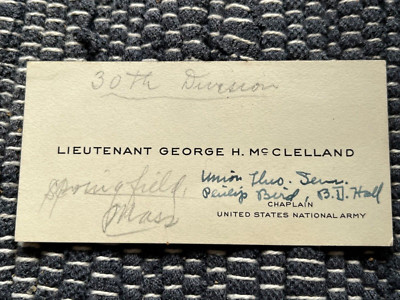 30th Division
LIEUTENANT GEORGE H. McCLELLAND
Springfield,
Mass
Union Theo. Sem.
Philip Bird, B.D. Hall
CHAPLAIN
UNITED STATES NATIONAL ARMY